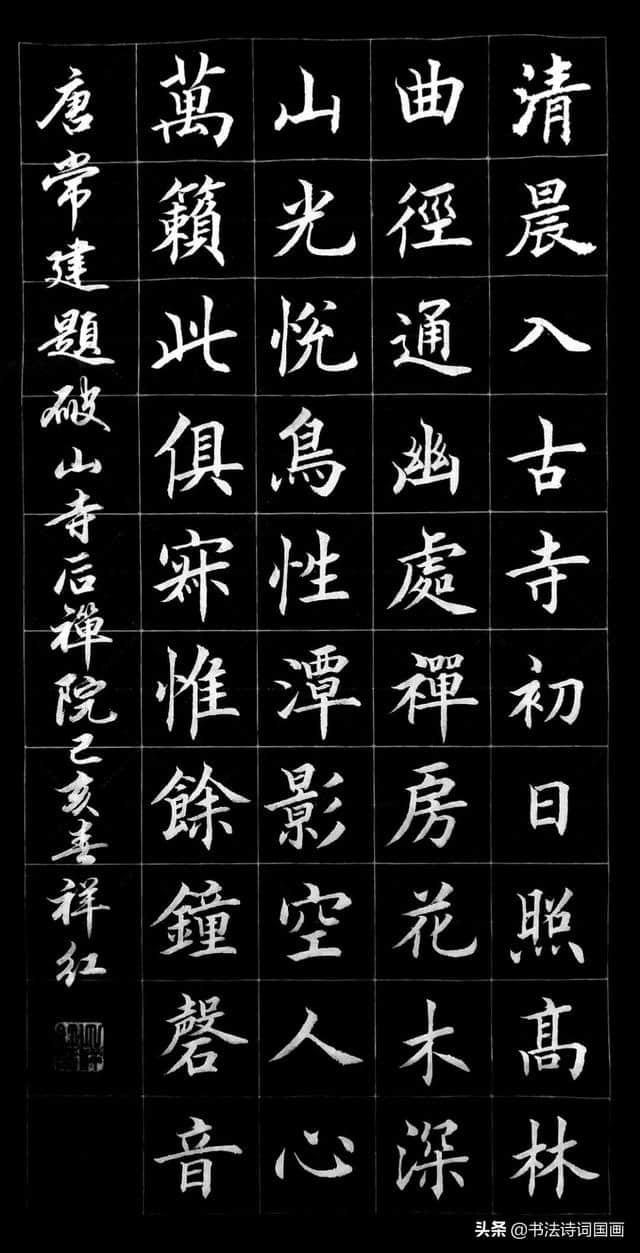 清晨入古寺初日照髙林
曲徑通幽處禪房花木深
山光悅鳥性潭影空人心
萬籟此俱寂惟餘鐘磬音
唐常建題破山寺后禪院己亥春祥红
头条 @书法诗词国画